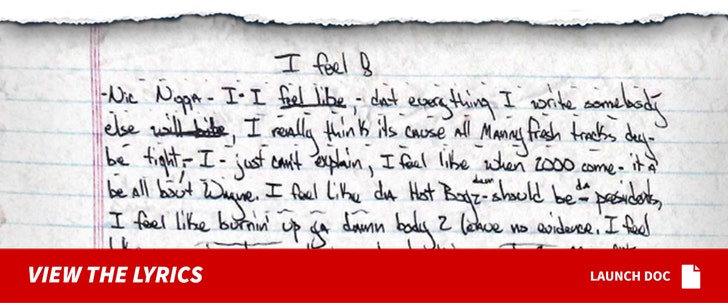 I feel 8
-Nic Nigga - I - I feel like, - dat everything I write somebody
else will bite, I really think its cause all Mannyfresh tracks dey-
be tight, - I - just can't explain, I feel like when 2000 come - it'd
be all bout Wayne. I feel like da Hot Boyz - dem should be - da presidents,
I feel like burnin' up ya damn body 2 leave no evidence. I feel
VIEW THE LYRICS
LAUNCH DOC